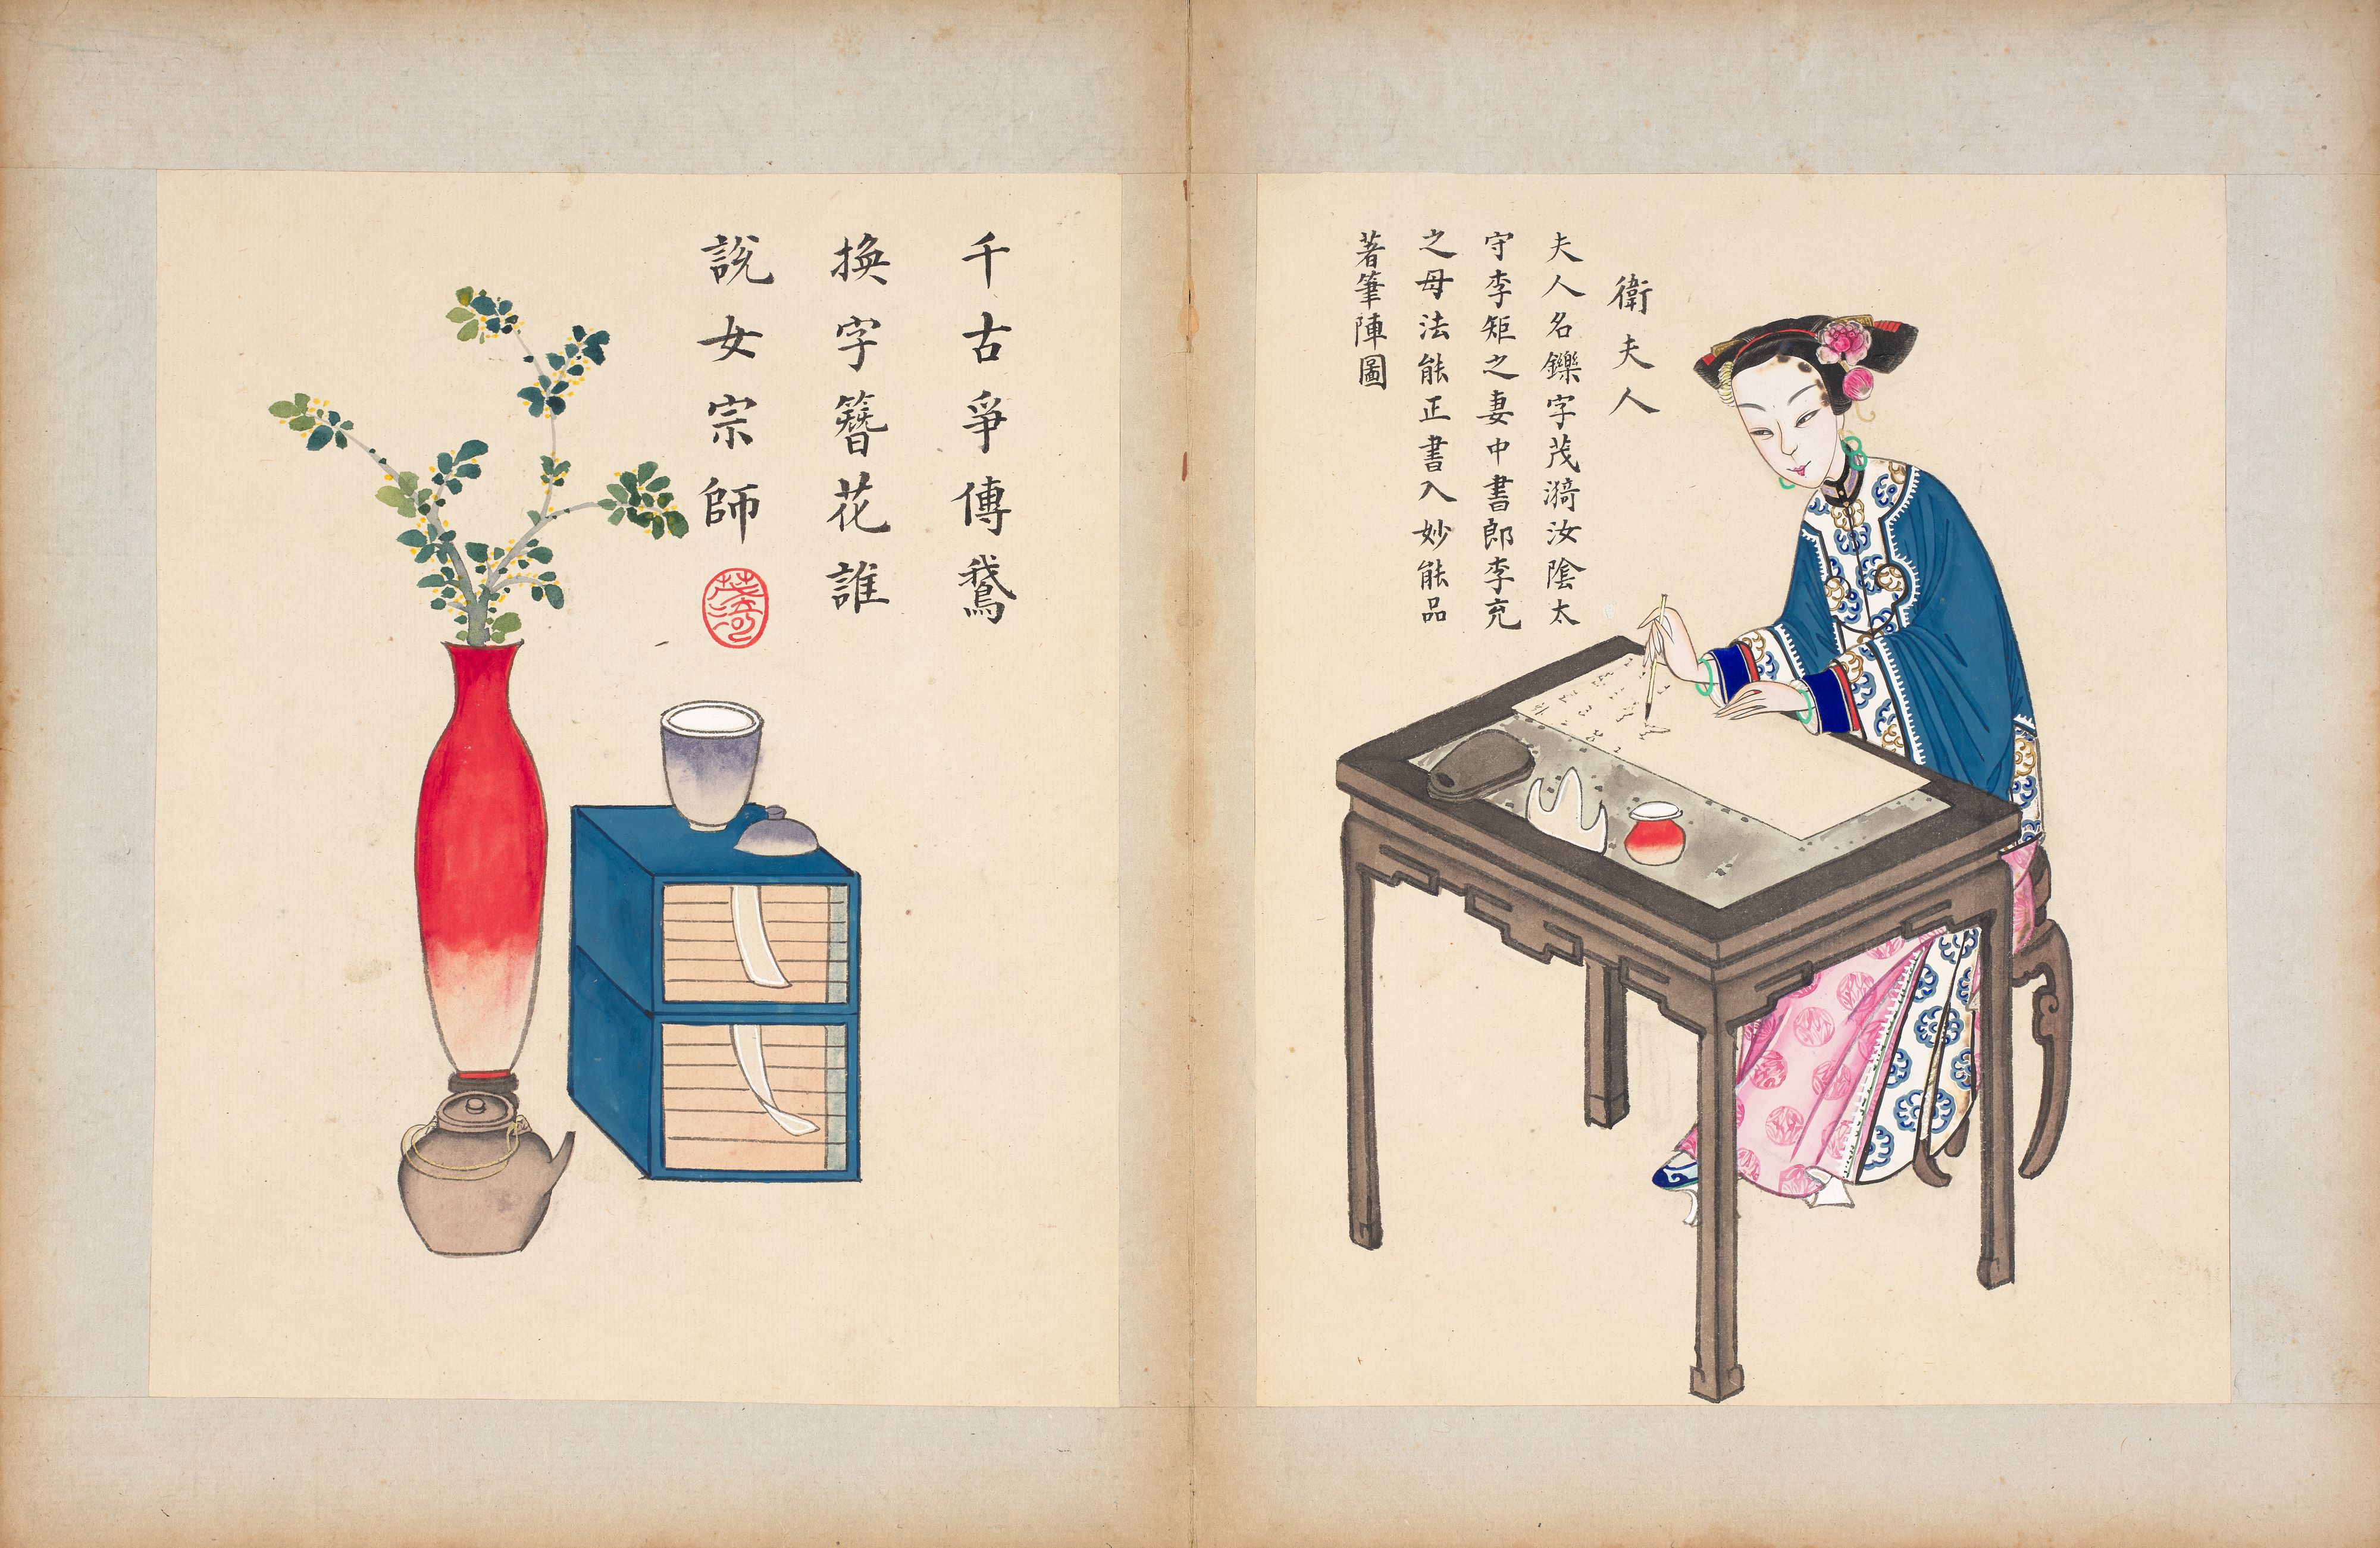 衛夫人
夫人名鑠字茂漪汝陰太
守李矩之妻中書郎李充
之母法能正書入妙能品
著筆陣圖
千古爭傳鵞
換字簪花誰
說女宗師
茂漪